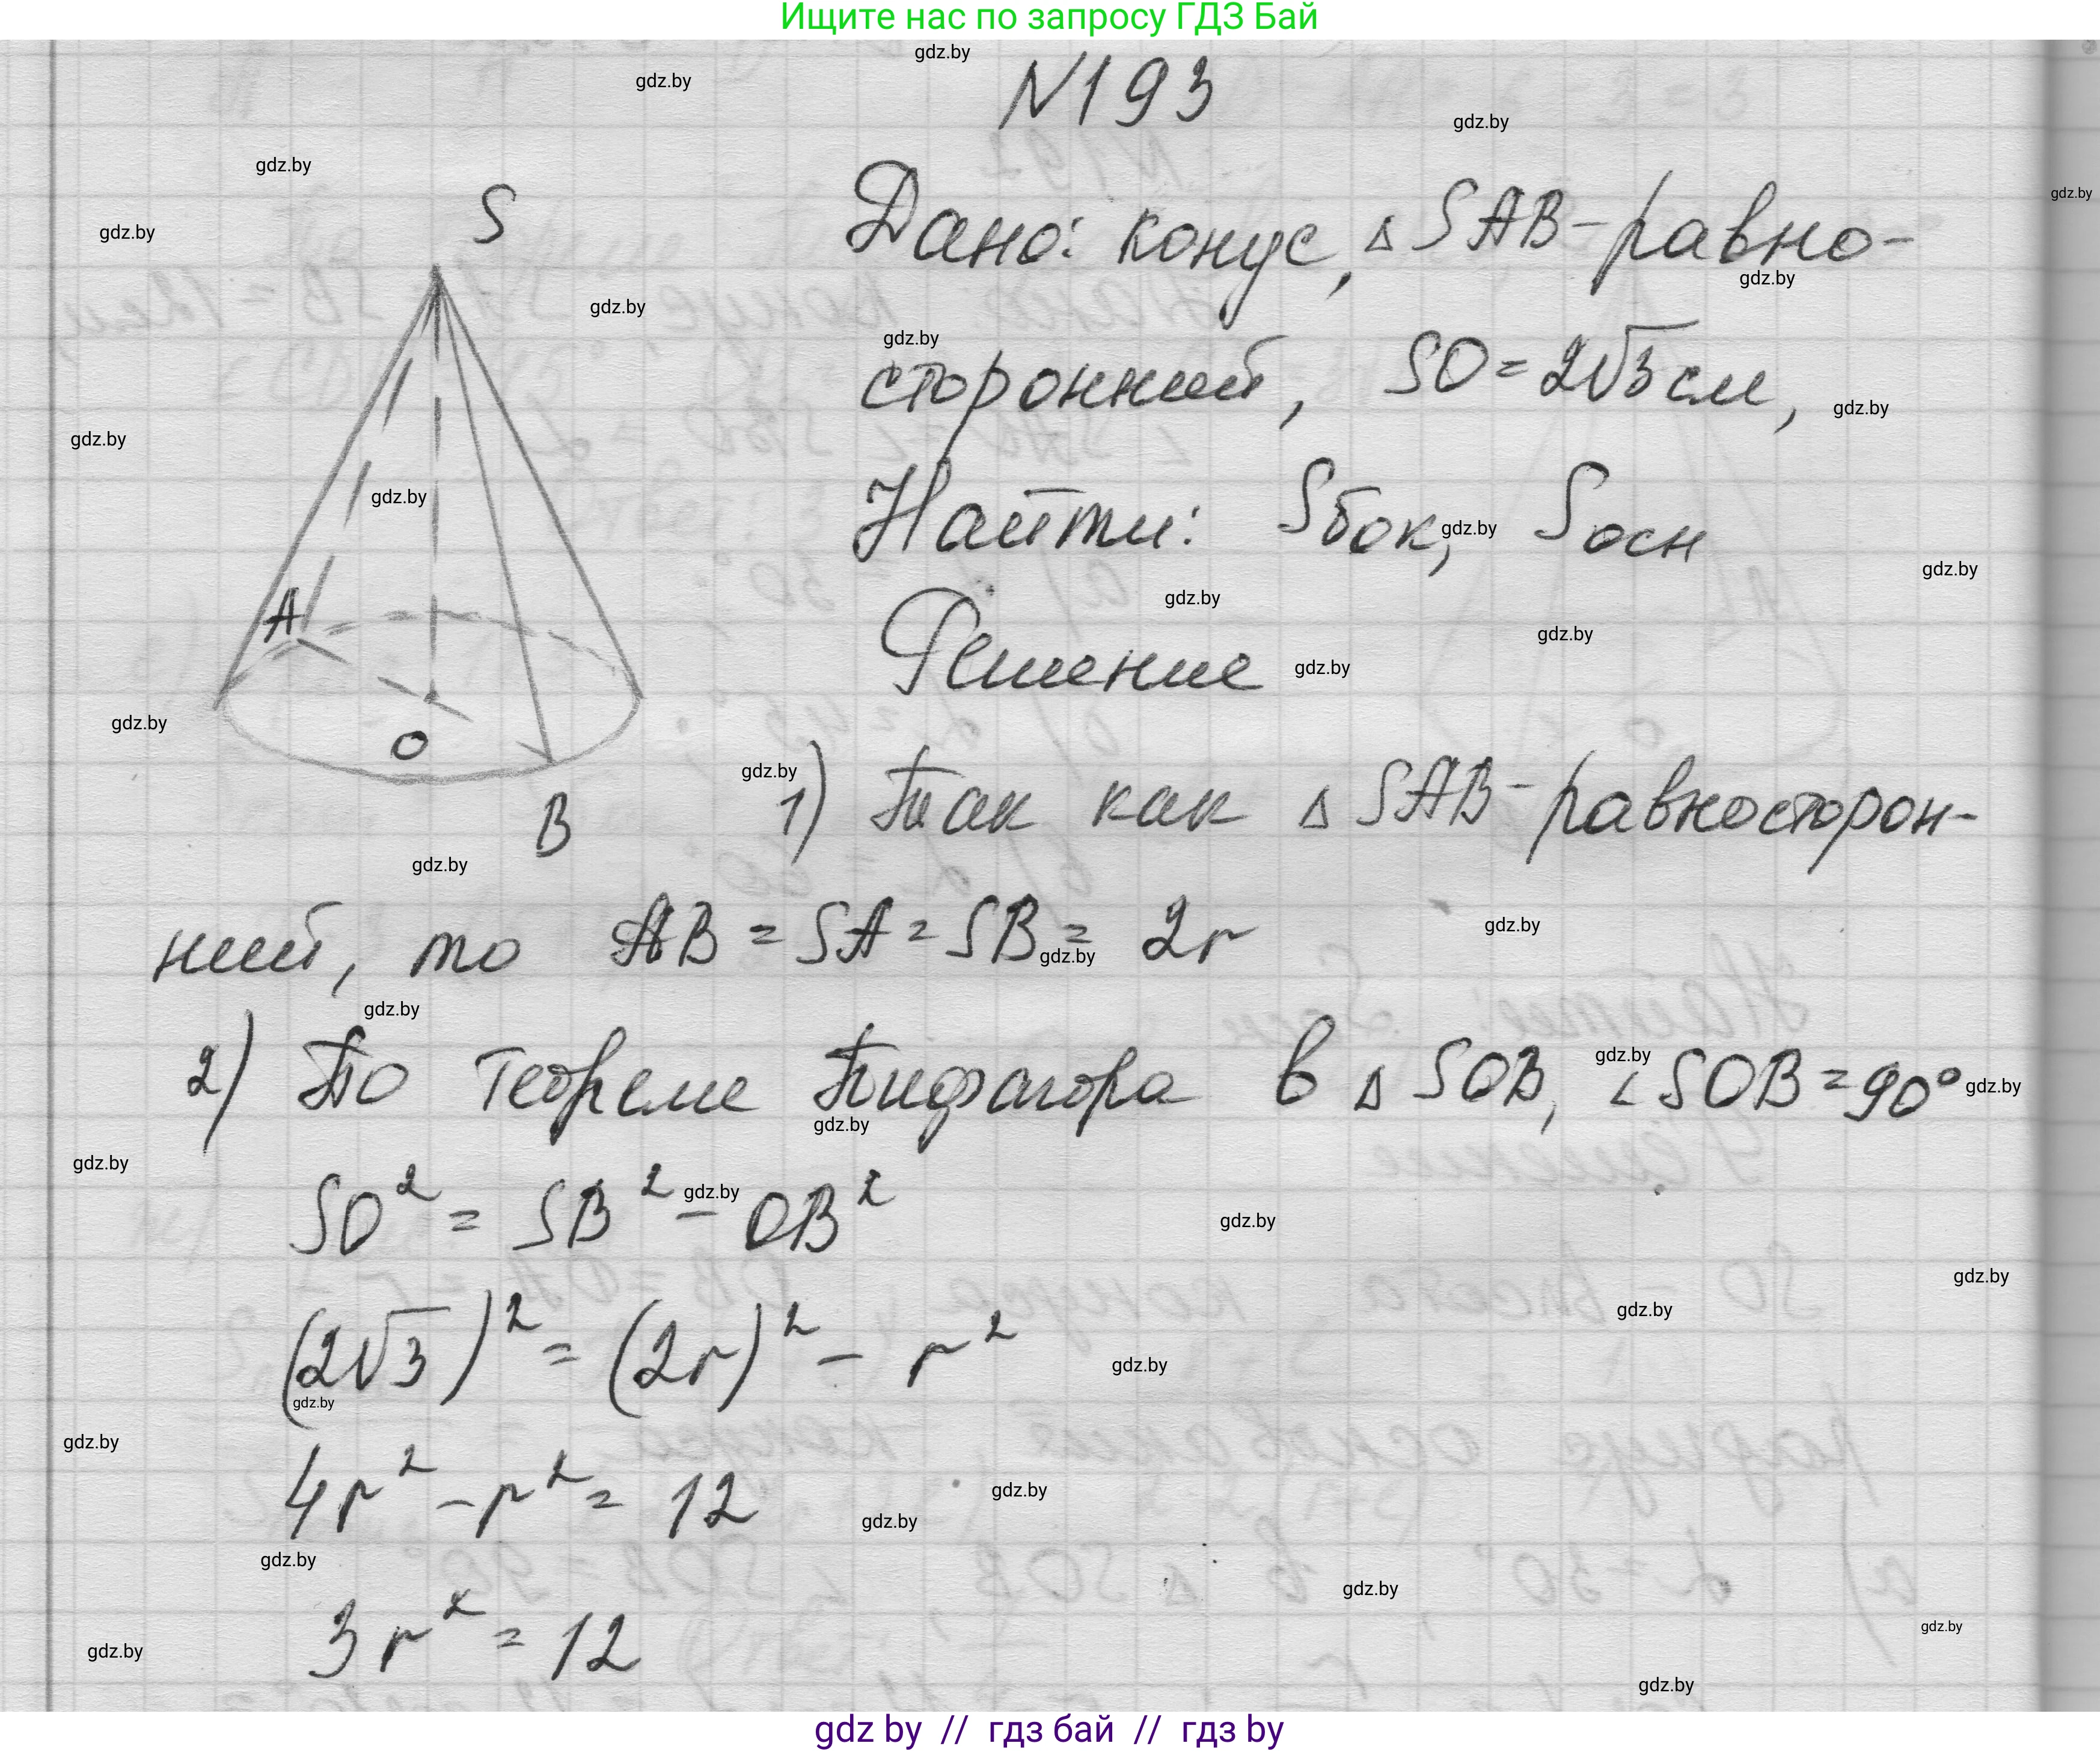 Ищите нас по запросу ГДЗ Бай
N193
Дано: конус, △ SAB - равно-
сторонний, SO = 2√3 см,
Найти: Sбок, Sосн
Решение
S
A
O
B
1) Так как △ SAB - равносторон-
ний, то AB = SA = SB = 2r
2) По теореме Пифагора в △ SOB, ∠SOB = 90°
SO² = SB² - OB²
(2√3)² = (2r)² - r²
4r² - r² = 12
3r² = 12
gdz.by
gdz by // гдз бай // гдз by